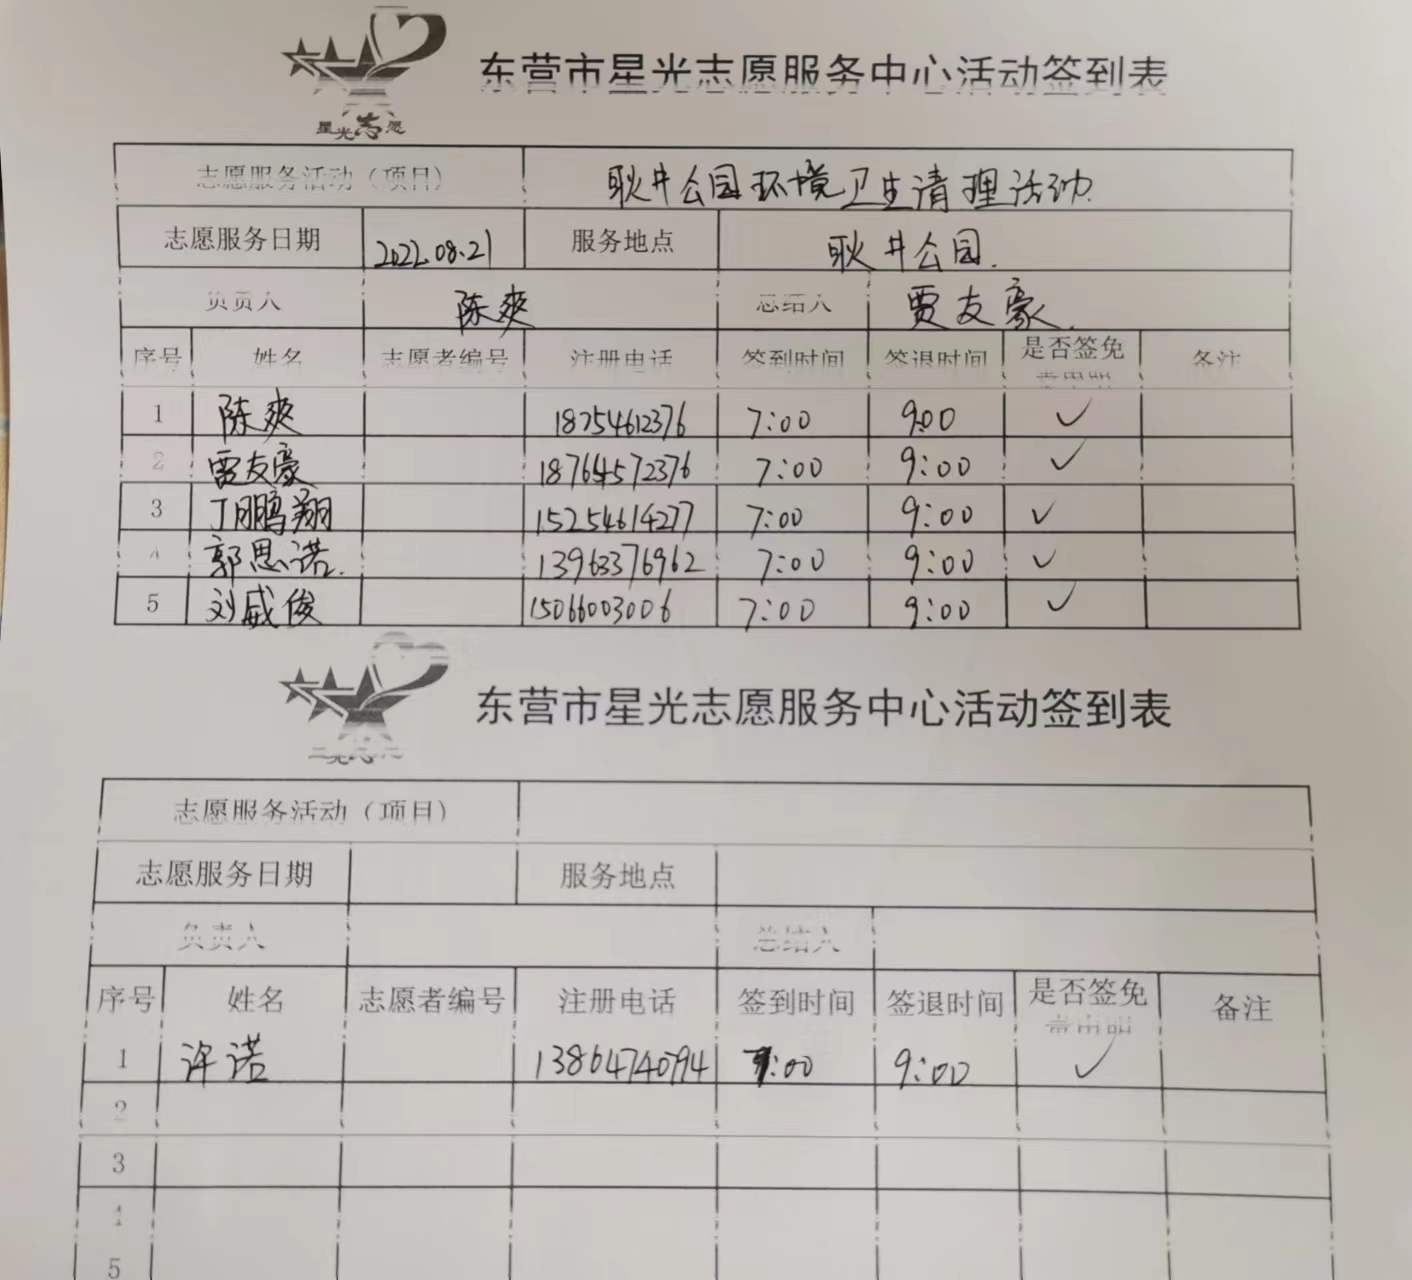 星光志愿
东营市星光志愿服务中心活动签到表
志愿服务活动（项目） 耿井公园环境卫生清理活动
志愿服务日期 2022.08.21 服务地点 耿井公园.
负责人 陈爽 总结人 贾友豪.
序号 姓名 志愿者编号 注册电话 签到时间 签退时间 是否签免责申明 备注
1 陈爽 18254612376 7:00 9:00 ✓
2 贾友豪 18764572376 7:00 9:00 ✓
3 丁鹏翔 15254614277 7:00 9:00 ✓
4 郭思诺. 13963376962 7:00 9:00 ✓
5 刘威俊 15066003006 7:00 9:00 ✓
东营市星光志愿服务中心活动签到表
志愿服务活动（项目）
志愿服务日期 服务地点
负责人 总结人
序号 姓名 志愿者编号 注册电话 签到时间 签退时间 是否签免责申明 备注
1 许诺 13864740794 7:00 9:00 ✓
2
3
4
5